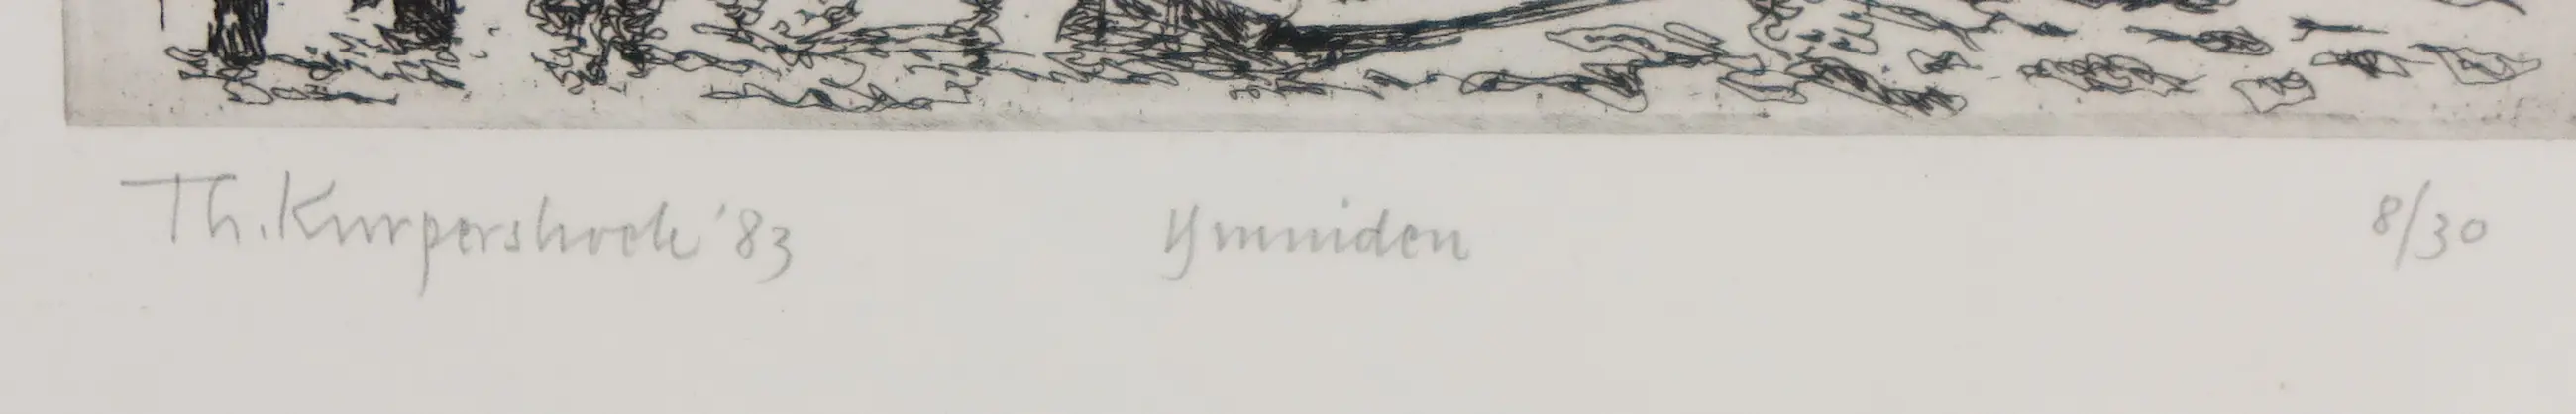 Th. Kurpershoek '83 IJmuiden 8/30